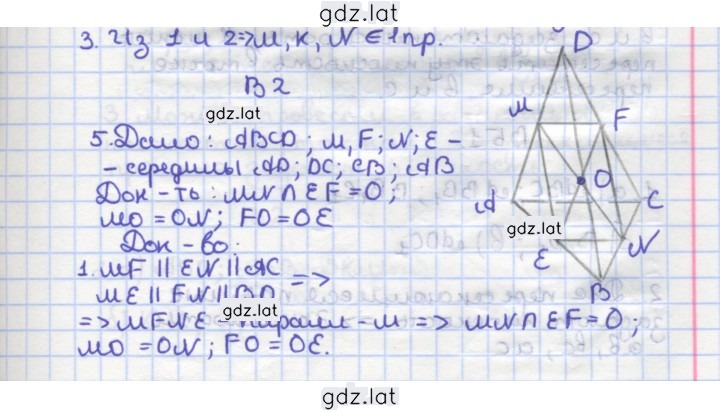 gdz.lat
3. Из 1 и 2 => M, K, N ∈ 1 пр.
В 2
gdz.lat
5. Дано: ABCD; M, F; N; E -
- середины AD; DC; CB; AB
Док-ть: MN ∩ EF = O;
MO = ON; FO = OE
Док-во:
1. MF || EN || AC
ME || FN || BD =>
gdz.lat
=> MFNE - паралл-м => MN ∩ EF = O;
MO = ON; FO = OE.
D
M
F
O
A
C
gdz.lat
E
N
B
gdz.lat